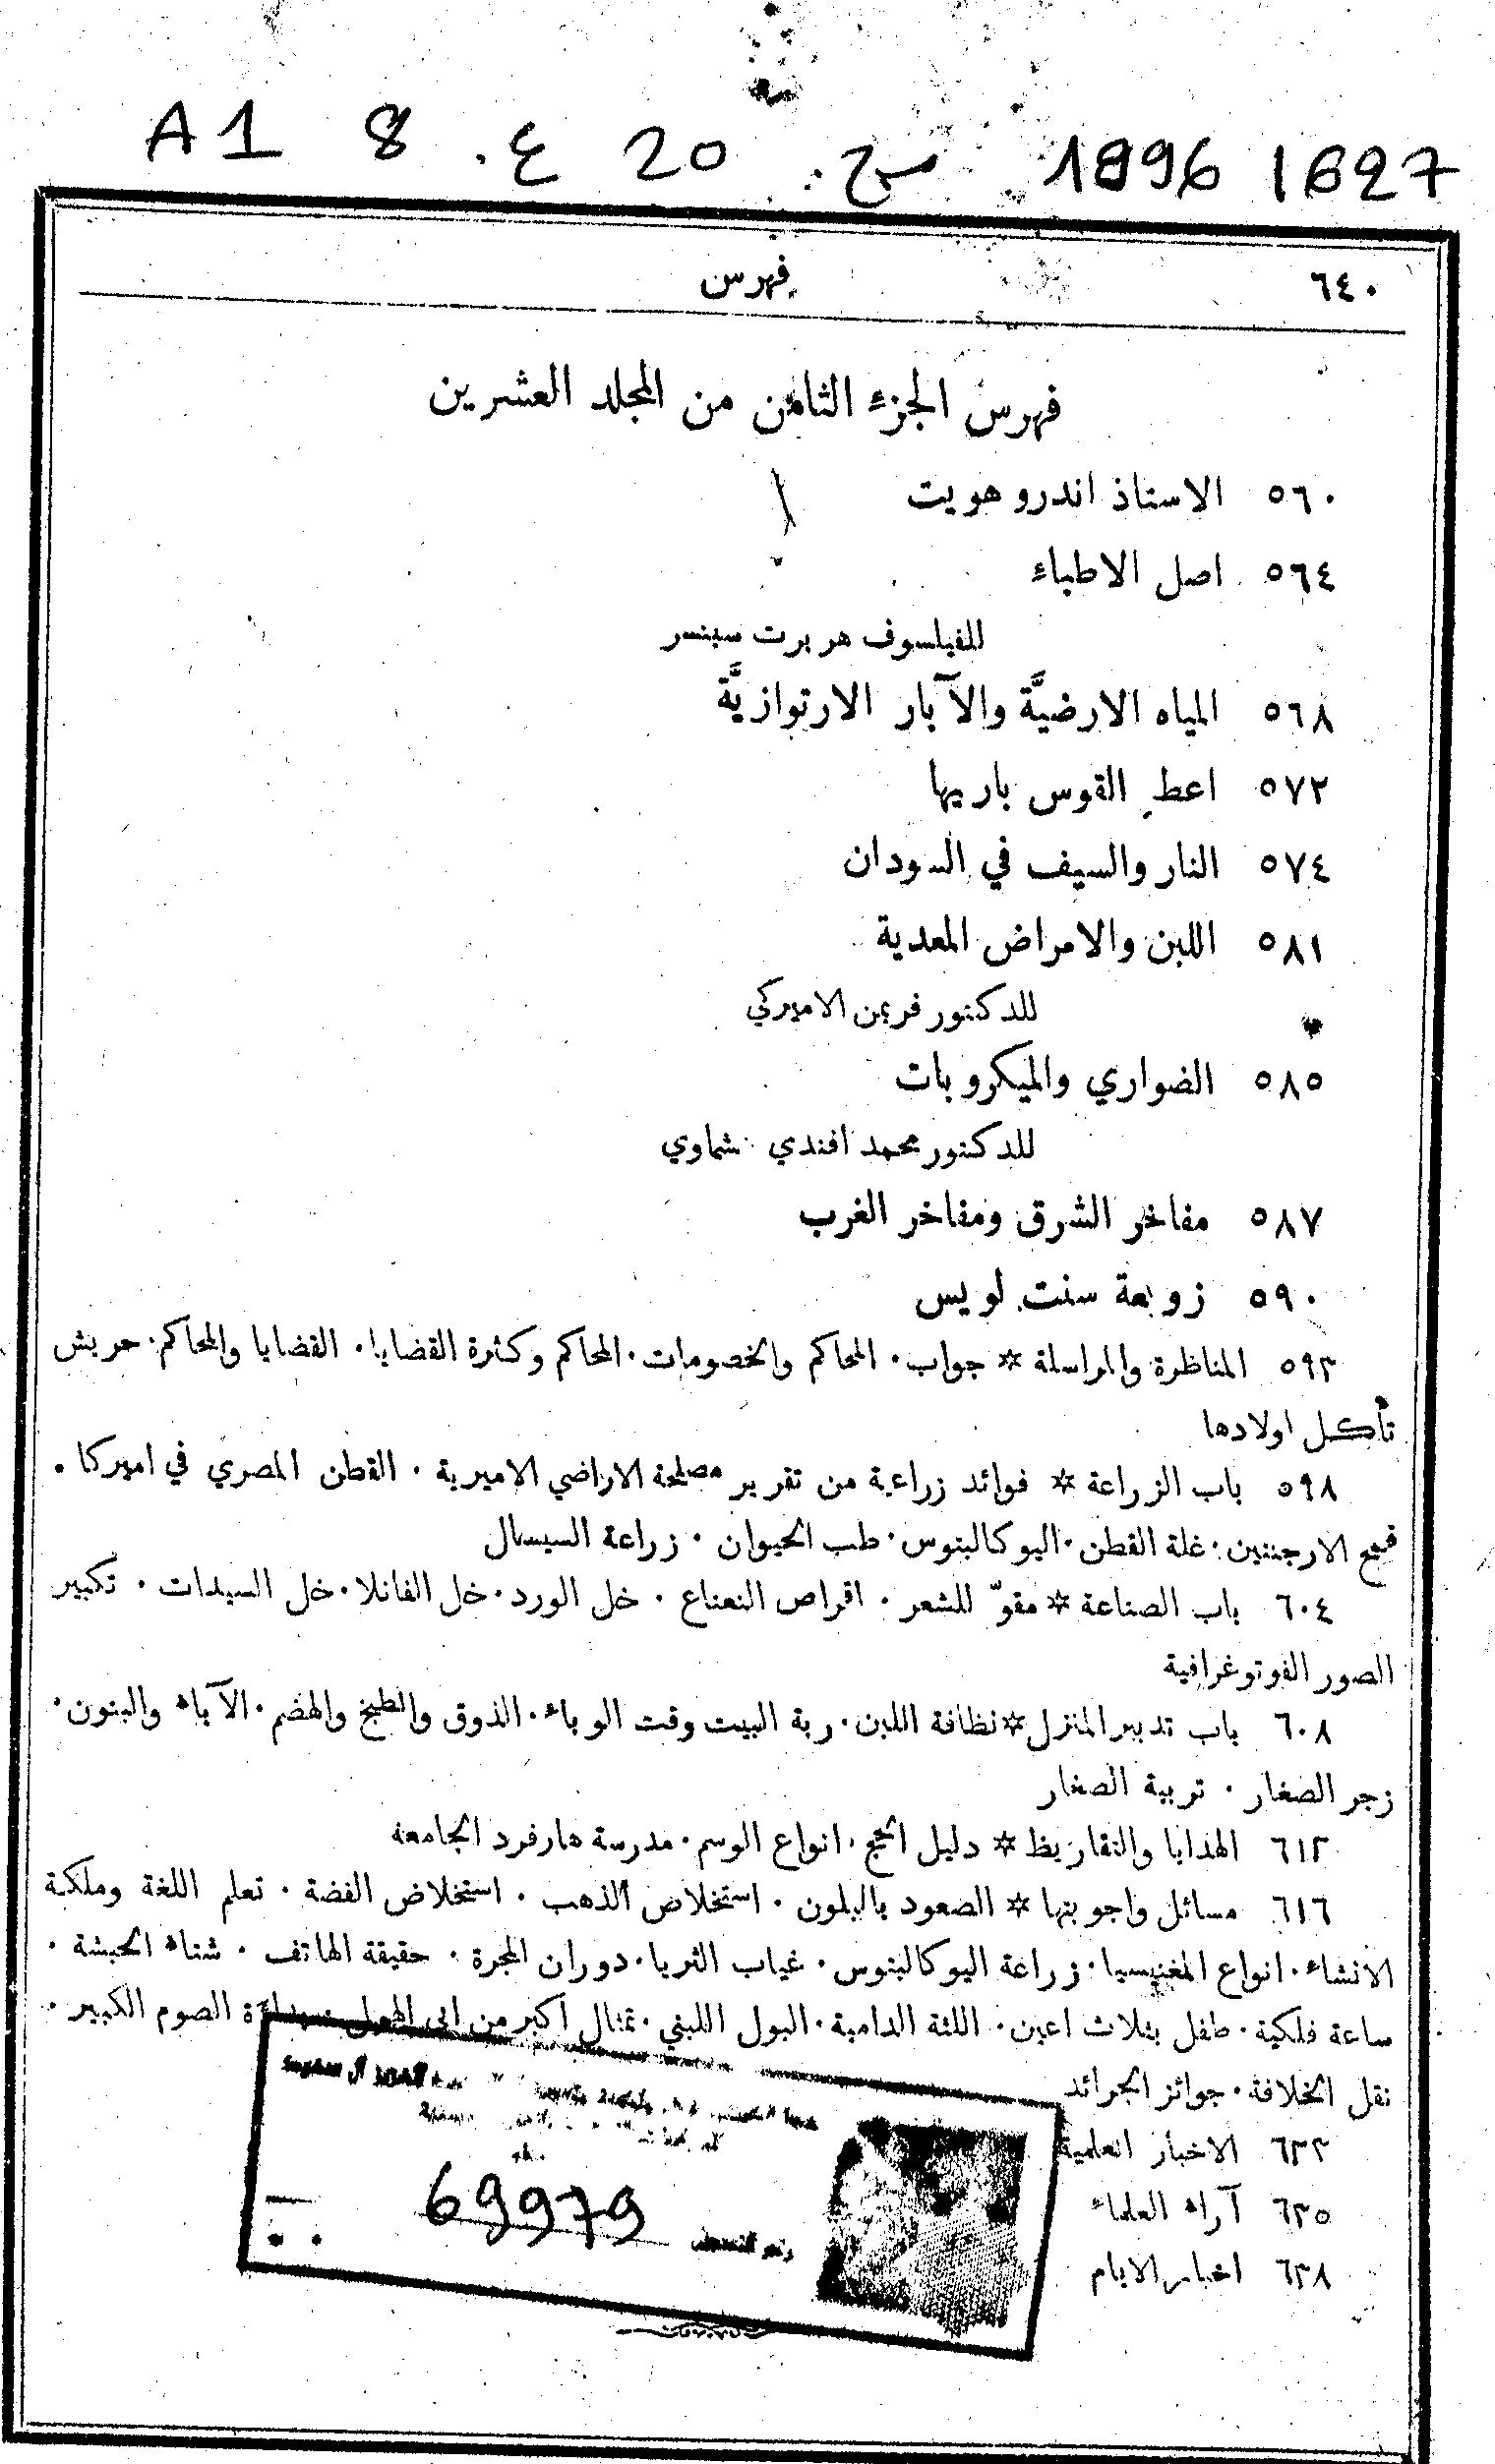 A1 8 .ع 20 .مج 1896 1627
٦٤٠ فهرس
فهرس الجزء الثامن من المجلد العشرين
٥٦٠ الاستاذ اندرو هويت
٥٦٤ اصل الاطباء
للفيلسوف هربرت سبنسر
٥٦٨ المياه الارضيَّة والآبار الارتوازيَّة
٥٧٢ اعطِ القوس باريها
٥٧٤ النار والسيف في السودان
٥٨١ اللبن والامراض المعدية
للدكتور فريمن الاميركي
٥٨٥ الضواري والميكروبات
للدكتور محمد افندي شماوي
٥٨٧ مفاخر الشرق ومفاخر الغرب
٥٩٠ زوبعة سنت لويس
٥٩٣ المناظرة والمراسلة * جواب. المحاكم والخصومات. المحاكم وكثرة القضايا. القضايا والمحاكم. حربش
تأكل اولادها
٥٩٨ باب الزراعة * فوائد زراعية من تقرير مصلحة الاراضي الاميرية. القطن المصري في اميركا.
قمح الارجنتين. غلة القطن. اليوكالبتوس. طب الحيوان. زراعة السيسال
٦٠٤ باب الصناعة * مقوّ للشعر. اقراص النعناع. خل الورد. خل الفانلا. خل السيدات. تكبير
الصور الفوتوغرافية
٦٠٨ باب تدبير المنزل * نظافة اللبن. ربة البيت وقت الوباء. الذوق والطبخ والهضم. الآباء والبنون.
زجر الصغار. تربية الصغار
٦١٢ الهدايا والتقاريظ * دليل الحج. انواع الوسم. مدرسة هارفرد الجامعة
٦١٦ مسائل واجوبتها * الصعود بالبلون. استخلاص الذهب. استخلاص الفضة. تعلم اللغة وملكة
الانشاء. انواع المغنيسيا. زراعة اليوكالبتوس. غياب الثريا. دوران المجرة. حقيقة الهاتف. شتاء الحبشة.
ساعة فلكية. طفل بثلاث اعين. اللثة الدامية. البول اللبني. تمثال اكبر من ابي الهول الصوم الكبير.
نقل الخلافة. جوائز الجرائد
٦٢٢ الاخبار العلمية
٦٣٥ آراء العلماء
٦٣٨ اخبار الايام
رقم التسجيل 69979